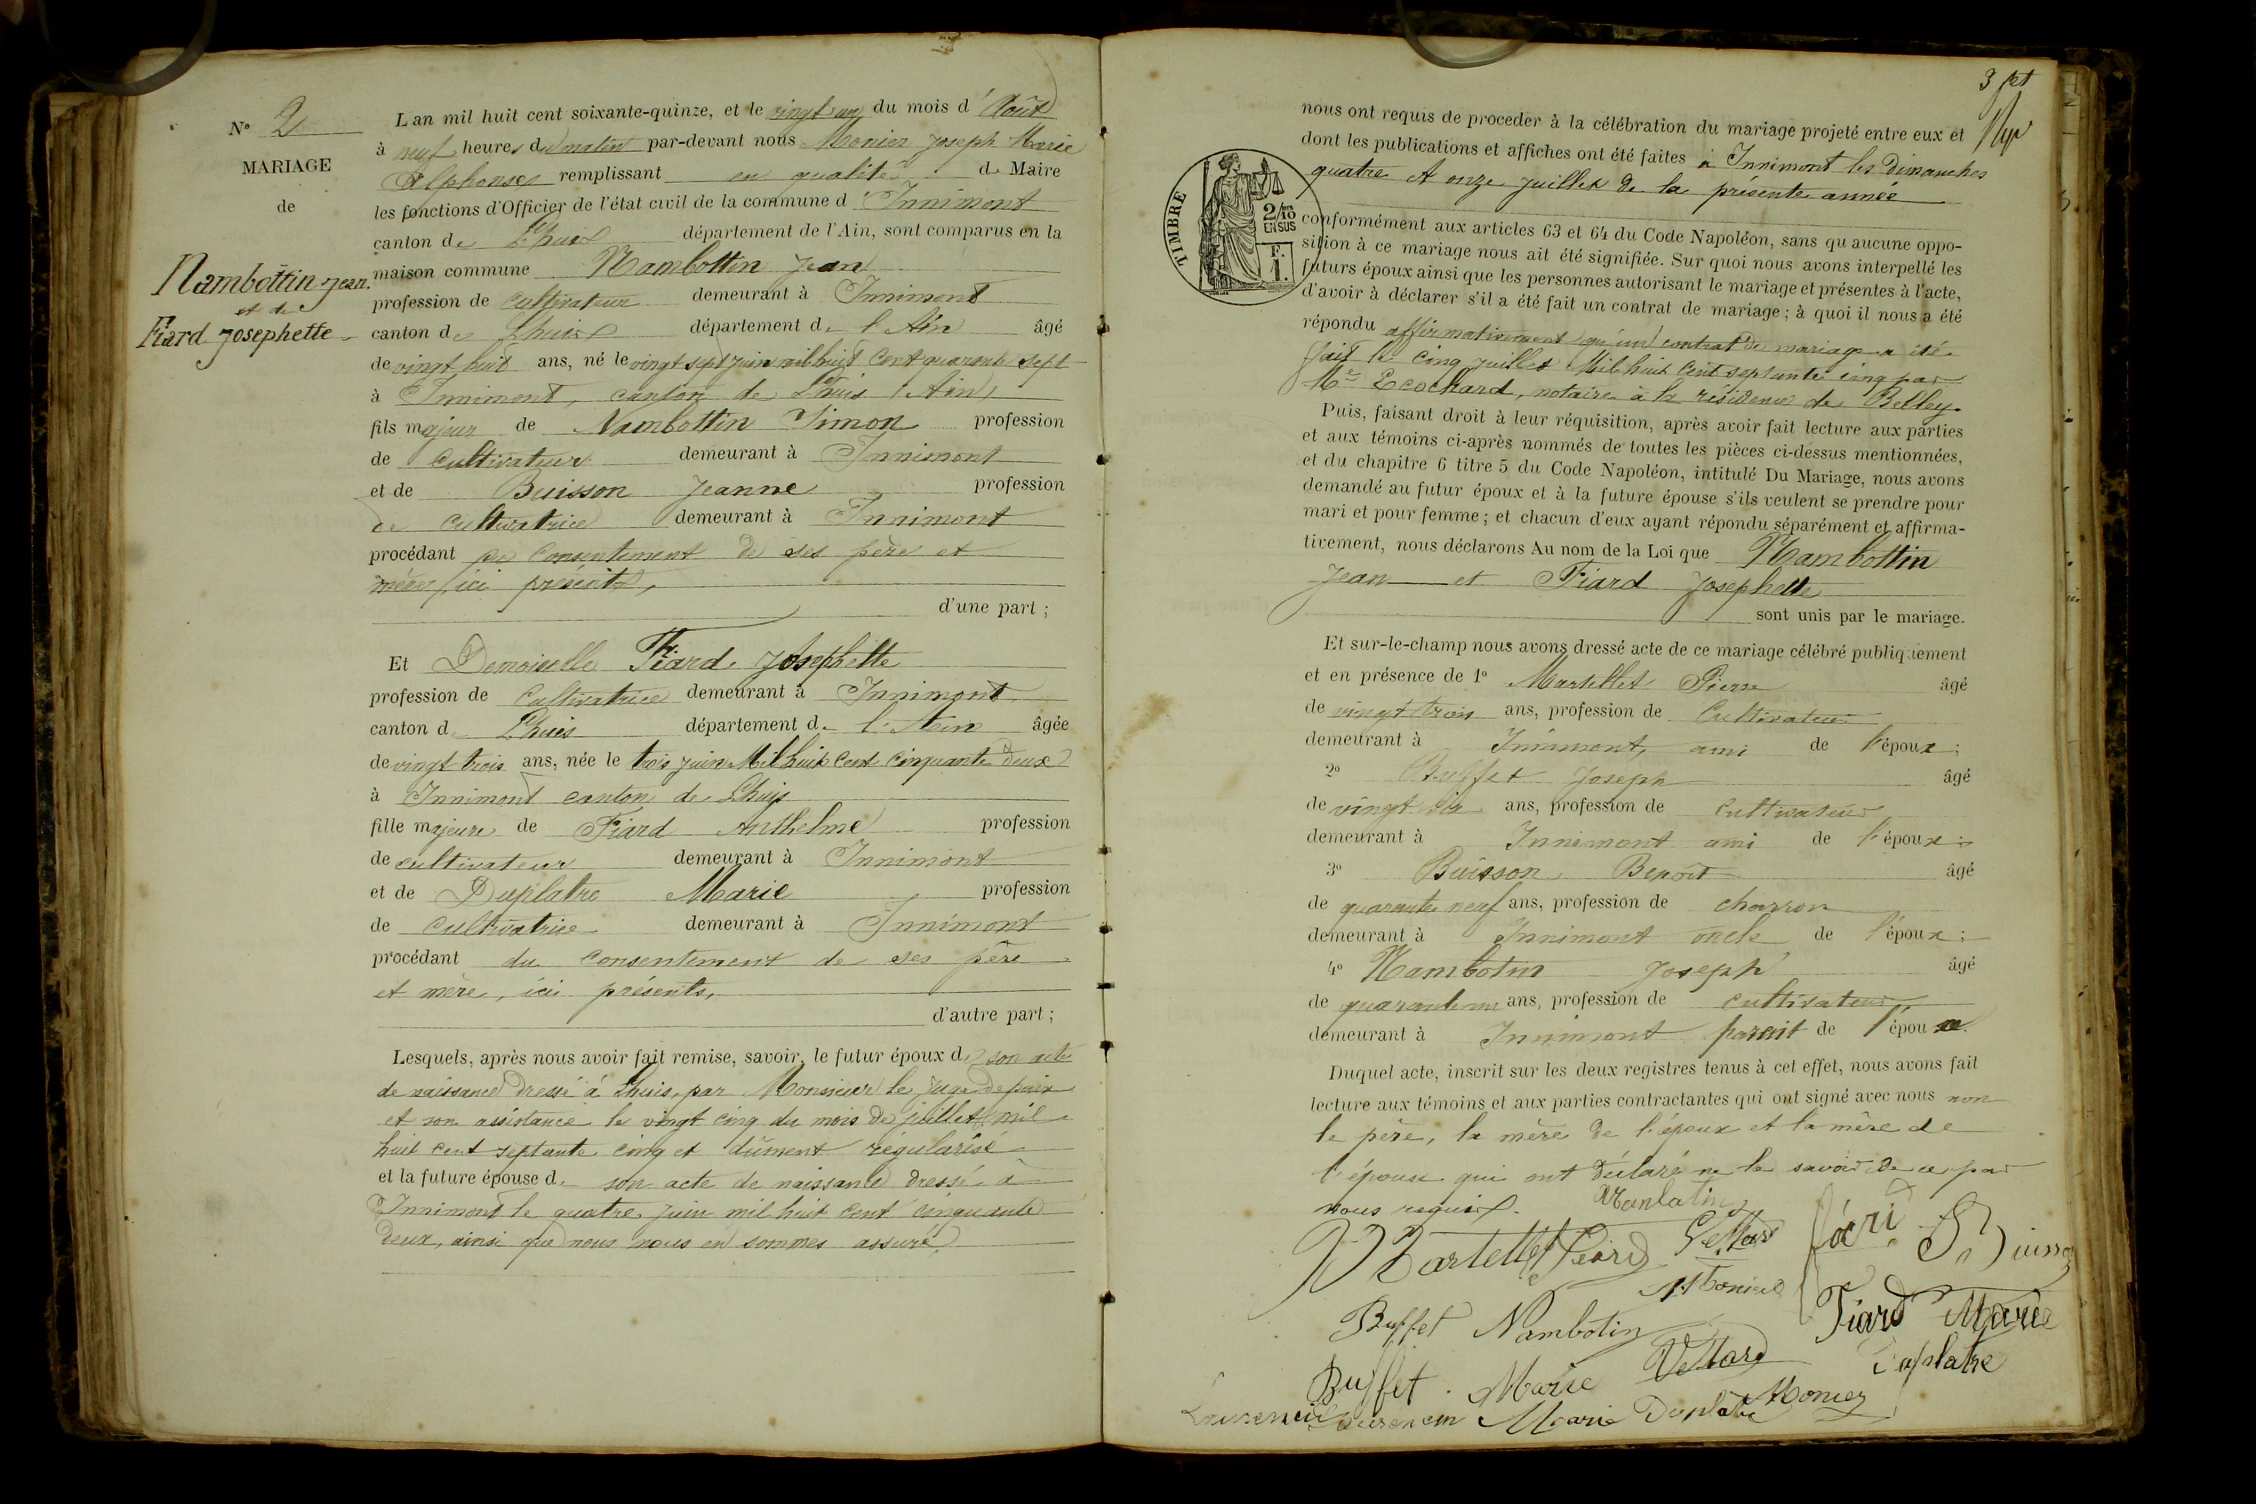 N° 2
MARIAGE
de
Nambottin Jean
et de
Fiard Josephette
L an mil huit cent soixante-quinze, et le vingt un du mois d' Août
à neuf heures du matin par-devant nous Monier Joseph Marie
Alphonse remplissant en qualité de Maire
les fonctions d'Officier de l'état civil de la commune d' Innimont
canton de Lhuis département de l'Ain, sont comparus en la
maison commune Nambottin Jean
profession de cultivateur demeurant à Innimont
canton de Lhuis département de l'Ain âgé
de vingt huit ans, né le vingt sept juin mil huit cent quarante sept
à Innimont, canton de Lhuis (Ain)
fils majeur de Nambottin Simon profession
de cultivateur demeurant à Innimont
et de Buisson Jeanne profession
de cultivatrice demeurant à Innimont
procédant du consentement de ses père et
mère, ici présents,
d'une part ;
Et Demoiselle Fiard Josephette
profession de cultivatrice demeurant à Innimont
canton de Lhuis département de l'Ain âgée
de vingt trois ans, née le trois juin Mil huit cent cinquante deux
à Innimont canton de Lhuis
fille majeure de Fiard Anthelme profession
de cultivateur demeurant à Innimont
et de Duplatre Marie profession
de cultivatrice demeurant à Innimont
procédant du consentement de ses père
et mère, ici présents,
d'autre part ;
Lesquels, après nous avoir fait remise, savoir, le futur époux de son acte
de naissance dressé à Lhuis, par Monsieur le juge de paix
et son assistance le vingt cinq du mois de juillet mil
huit cent septante cinq et dûment régularisé
et la future épouse de son acte de naissance dressé à
Innimont le quatre juin mil huit cent cinquante
deux, ainsi que nous nous en sommes assuré.
3 fet
nous ont requis de proceder à la célébration du mariage projeté entre eux et
dont les publications et affiches ont été faites à Innimont les Dimanches
quatre et onze juillet de la présente année
TIMBRE
2/10
EN SUS
F.
1.
conformément aux articles 63 et 64 du Code Napoléon, sans qu aucune oppo-
sition à ce mariage nous ait été signifiée. Sur quoi nous avons interpellé les
futurs époux ainsi que les personnes autorisant le mariage et présentes à l'acte,
d'avoir à déclarer s'il a été fait un contrat de mariage ; à quoi il nous a été
répondu affirmativement qu'un contrat de mariage a été
fait le cinq juillet Mil huit cent septante cinq par
Me Ecochard, notaire à la résidence de Belley.
Puis, faisant droit à leur réquisition, après avoir fait lecture aux parties
et aux témoins ci-après nommés de toutes les pièces ci-dessus mentionnées,
et du chapitre 6 titre 5 du Code Napoléon, intitulé Du Mariage, nous avons
demandé au futur époux et à la future épouse s'ils veulent se prendre pour
mari et pour femme ; et chacun d'eux ayant répondu séparément et affirma-
tivement, nous déclarons Au nom de la Loi que Nambottin
Jean et Fiard Josephette
sont unis par le mariage.
Et sur-le-champ nous avons dressé acte de ce mariage célébré publiquement
et en présence de 1° Martellet Pierre âgé
de vingt trois ans, profession de Cultivateur
demeurant à Innimont, ami de l'époux ;
2° Buffet Joseph âgé
de vingt six ans, profession de cultivateur
demeurant à Innimont ami de l'époux ;
3° Buisson Benoit âgé
de quarante neuf ans, profession de charron
demeurant à Innimont oncle de l'époux ;
4° Nambotin Joseph âgé
de quarante un ans, profession de cultivateur,
demeurant à Innimont parent de l'époux.
Duquel acte, inscrit sur les deux registres tenus à cet effet, nous avons fait
lecture aux témoins et aux parties contractantes qui ont signé avec nous non
le père, la mère de l'époux et la mère de
l'épouse qui ont déclaré ne le savoir de ce par
nous requis.
Martellet Pierre Vettard
Buffet Nambotin Fiard Marie
Buffet Marie Vettard Duplatre
Marie Duplatre Monier